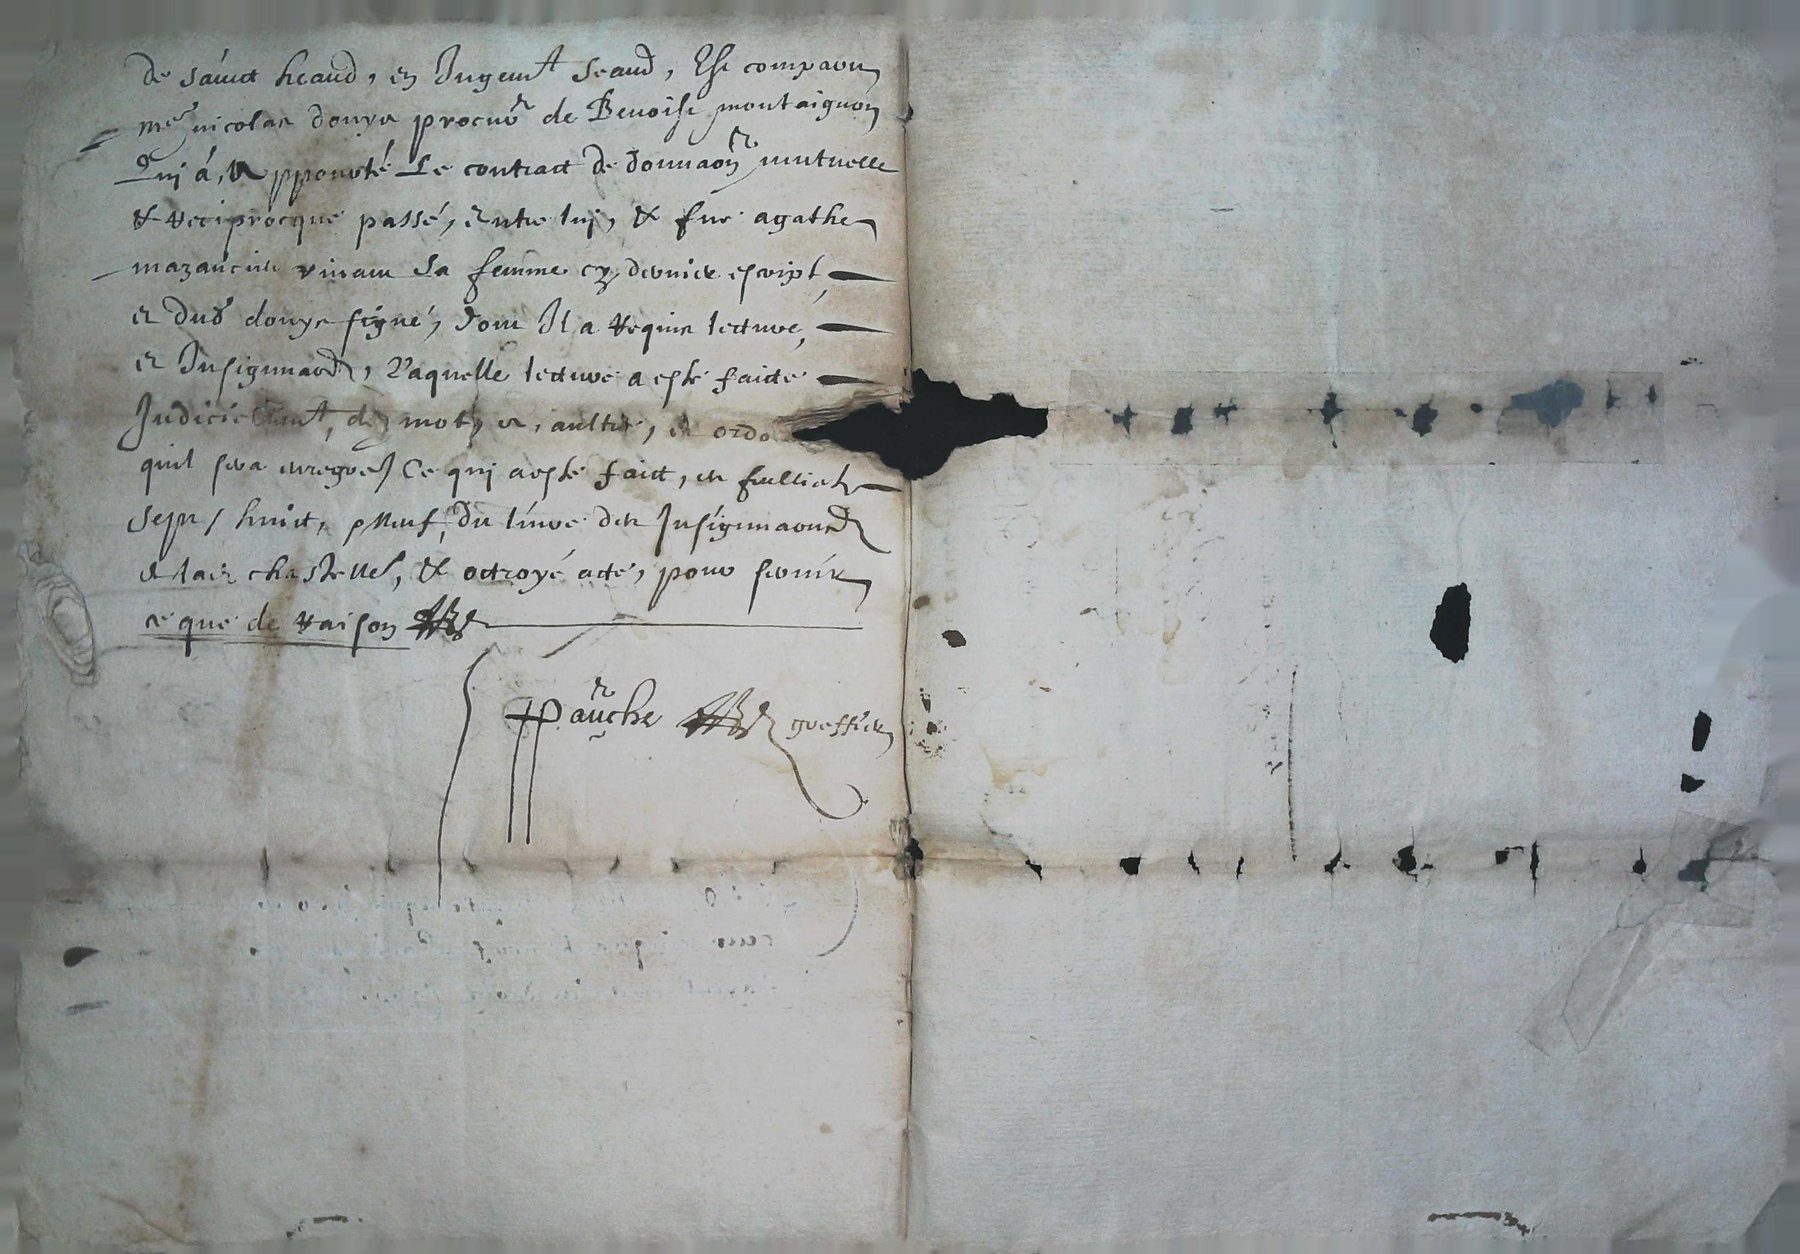 de sainct heand, en Jugemt seand, Est comparu
me nicolas douya procur de Benoist montaignon
Qui á, Rapporté Le contract de donnaon mutuelle
& reciprocque passé, entre luy, & fue agathe
vivant sa femme cy dernier escript,
et dud douya signé, dont Il a requis lecture,
et Insignuaon, Laquelle lecture a esté faicte
Judiciellemt, de mot a, aultre, et ordo
quil sera enregré Ce qui a esté faict, en fuelliet
sept, huict, & neuf, du livre des Insignuaons
& octroyé acte, pour servir
ce que de raison
greffier